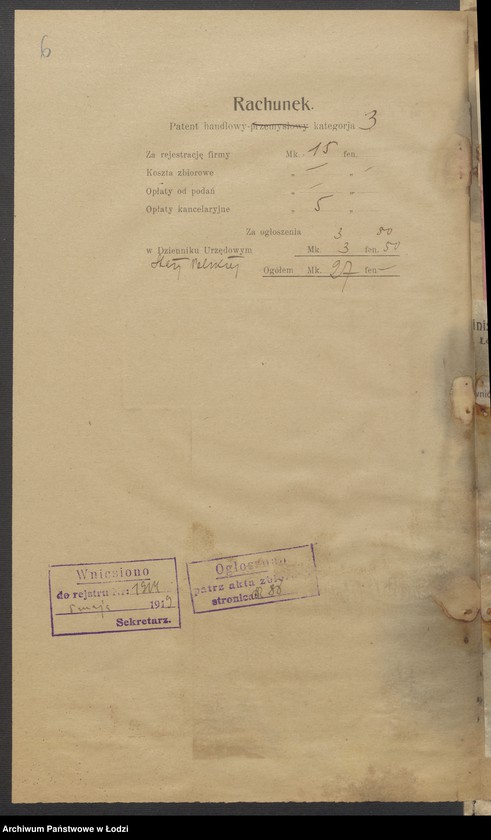 6
Rachunek.
Patent handlowy-przemysłowy kategorja 3
Za rejestrację firmy Mk. 15 fen.
Koszta zbiorowe " — " —
Opłaty od podań " — " —
Opłaty kancelaryjne " 5 "
Za ogłoszenia 3 50
w Dzienniku Urzędowym Mk. 3 fen. 50
Polskiej
Ogółem Mk. 27 fen —
Wniesiono
do rejatru
5 maja 1919
Sekretarz.
Ogłoszono
patrz akta zbior
stronica 88
Archiwum Państwowe w Łodzi